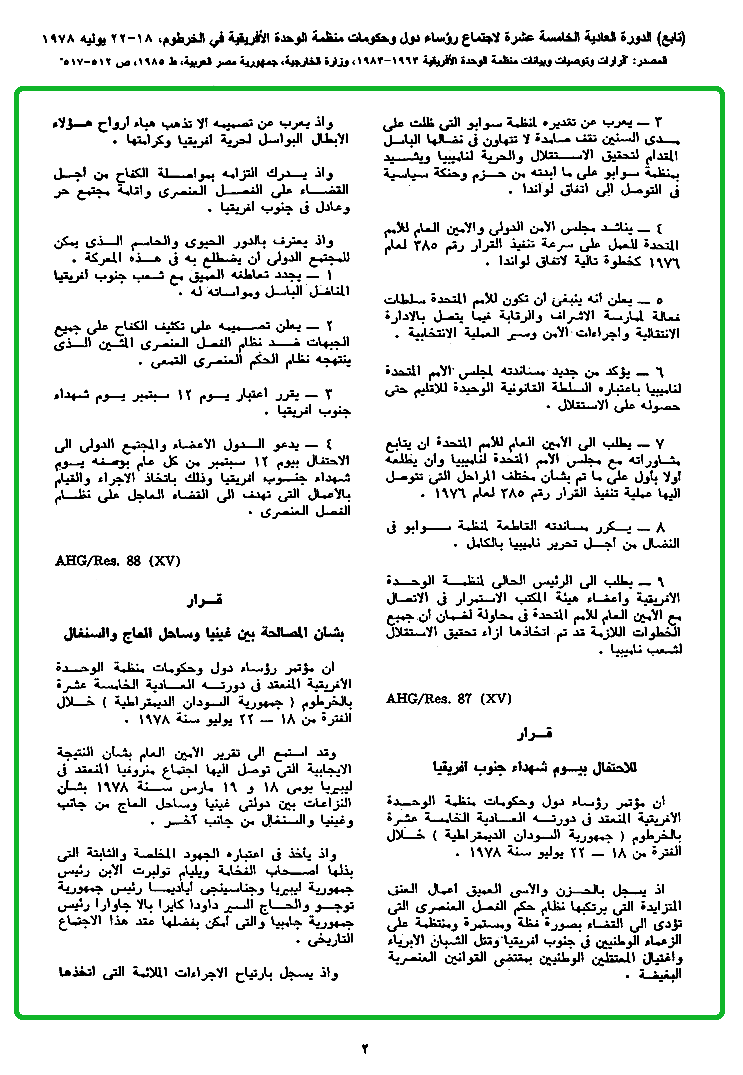 (تابع) الدورة العادية الخامسة عشرة لاجتماع رؤساء دول وحكومات منظمة الوحدة الأفريقية في الخرطوم، ١٨-٢٢ يوليه ١٩٧٨
المصدر: "قرارات وتوصيات وبيانات منظمة الوحدة الأفريقية ١٩٦٣-١٩٨٣، وزارة الخارجية، جمهورية مصر العربية، ط ١٩٨٥، ص ٥١٢-٥١٧"
٣ — يعرب عن تقديره لمنظمة سوابو التى ظلت على
مدى السنين تقف صامدة لا تتهاون فى نضالها الباسل
المقدام لتحقيق الاستقلال والحرية لناميبيا ويشيد
بمنظمة سوابو على ما ابدته من حزم وحنكة سياسية
فى التوصل الى اتفاق لواندا .
٤ — يناشد مجلس الامن الدولى والامين العام للأمم
المتحدة للعمل على سرعة تنفيذ القرار رقم ٣٨٥ لعام
١٩٧٦ كخطوة تالية لاتفاق لواندا .
٥ — يعلن انه ينبغى ان تكون للأمم المتحدة سلطات
فعالة لممارسة الاشراف والرقابة فيما يتصل بالادارة
الانتقالية واجراءات الامن وسير العملية الانتخابية .
٦ — يؤكد من جديد مساندته لمجلس الأمم المتحدة
لناميبيا باعتباره السلطة القانونية الوحيدة للاقليم حتى
حصوله على الاستقلال .
٧ — يطلب الى الأمين العام للأمم المتحدة ان يتابع
مشاوراته مع مجلس الأمم المتحدة لناميبيا وان يطلعه
أولا بأول على ما تم بشأن مختلف المراحل التى تتوصل
اليها عملية تنفيذ القرار رقم ٣٨٥ لعام ١٩٧٦ .
٨ — يكرر مساندته القاطعة لمنظمة سوابو فى
النضال من أجل تحرير ناميبيا بالكامل .
٩ — يطلب الى الرئيس الحالى لمنظمة الوحدة
الأفريقية واعضاء هيئة المكتب الاستمرار فى الاتصال
مع الأمين العام للأمم المتحدة فى محاولة لضمان أن جميع
الخطوات اللازمة قد تم اتخاذها ازاء تحقيق الاستقلال
لشعب ناميبيا .
AHG/Res. 87 (XV)
قرار
للاحتفال بيوم شهداء جنوب أفريقيا
أن مؤتمر رؤساء دول وحكومات منظمة الوحدة
الأفريقية المنعقد فى دورته العادية الخامسة عشرة
بالخرطوم ( جمهورية السودان الديمقراطية ) خلال
الفترة من ١٨ — ٢٢ يوليو سنة ١٩٧٨ .
اذ يسجل بالحزن والأسى العميق أعمال العنف
المتزايدة التى يرتكبها نظام حكم الفصل العنصرى التى
تؤدى الى القضاء بصورة فظة ومستمرة ومنتظمة على
الزعماء الوطنيين فى جنوب أفريقيا وقتل الشبان الأبرياء
واغتيال المعتقلين الوطنيين بمقتضى القوانين العنصرية
البغيضة .
واذ يعرب عن تصميمه ألا تذهب هباء أرواح هؤلاء
الأبطال البواسل لحرية أفريقيا وكرامتها .
واذ يدرك التزامه بمواصلة الكفاح من أجل
القضاء على الفصل العنصرى واقامة مجتمع حر
وعادل فى جنوب افريقيا .
واذ يعترف بالدور الحيوى والحاسم الذى يمكن
للمجتمع الدولى أن يضطلع به فى هذه المعركة .
١ — يجدد تعاطفه العميق مع شعب جنوب أفريقيا
المناضل الباسل ومواساته له .
٢ — يعلن تصميمه على تكثيف الكفاح على جميع
الجبهات ضد نظام الفصل العنصرى المشين الذى
ينتهجه نظام الحكم العنصرى القمعى .
٣ — يقرر اعتبار يوم ١٢ سبتمبر يوم شهداء
جنوب افريقيا .
٤ — يدعو الدول الاعضاء والمجتمع الدولى الى
الاحتفال بيوم ١٢ سبتمبر من كل عام بوصفه يوم
شهداء جنوب افريقيا وذلك باتخاذ الاجراء والقيام
بالأعمال التى تهدف الى القضاء العاجل على نظام
الفصل العنصرى .
AHG/Res. 88 (XV)
قرار
بشأن المصالحة بين غينيا وساحل العاج والسنغال
ان مؤتمر رؤساء دول وحكومات منظمة الوحدة
الأفريقية المنعقد فى دورته العادية الخامسة عشرة
بالخرطوم ( جمهورية السودان الديمقراطية ) خلال
الفترة من ١٨ — ٢٢ يوليو سنة ١٩٧٨ .
وقد استمع الى تقرير الامين العام بشأن النتيجة
الايجابية التى توصل اليها اجتماع منروفيا المنعقد فى
ليبريا يومى ١٨ و ١٩ مارس سنة ١٩٧٨ بشأن
النزاعات بين دولتى غينيا وساحل العاج من جانب
وغينيا والسنغال من جانب آخر .
واذ يأخذ فى اعتباره الجهود المخلصة والثابتة التى
بذلها اصحاب الفخامة ويليام تولبرت الابن رئيس
جمهورية ليبريا وجناسينجى أياديما رئيس جمهورية
توجو والحاج السير داودا كايرا بالا جاوارا رئيس
جمهورية جامبيا والتى أمكن بفضلها عقد هذا الاجتماع
التاريخى .
واذ يسجل بارتياح الاجراءات الملائمة التى اتخذها
٢